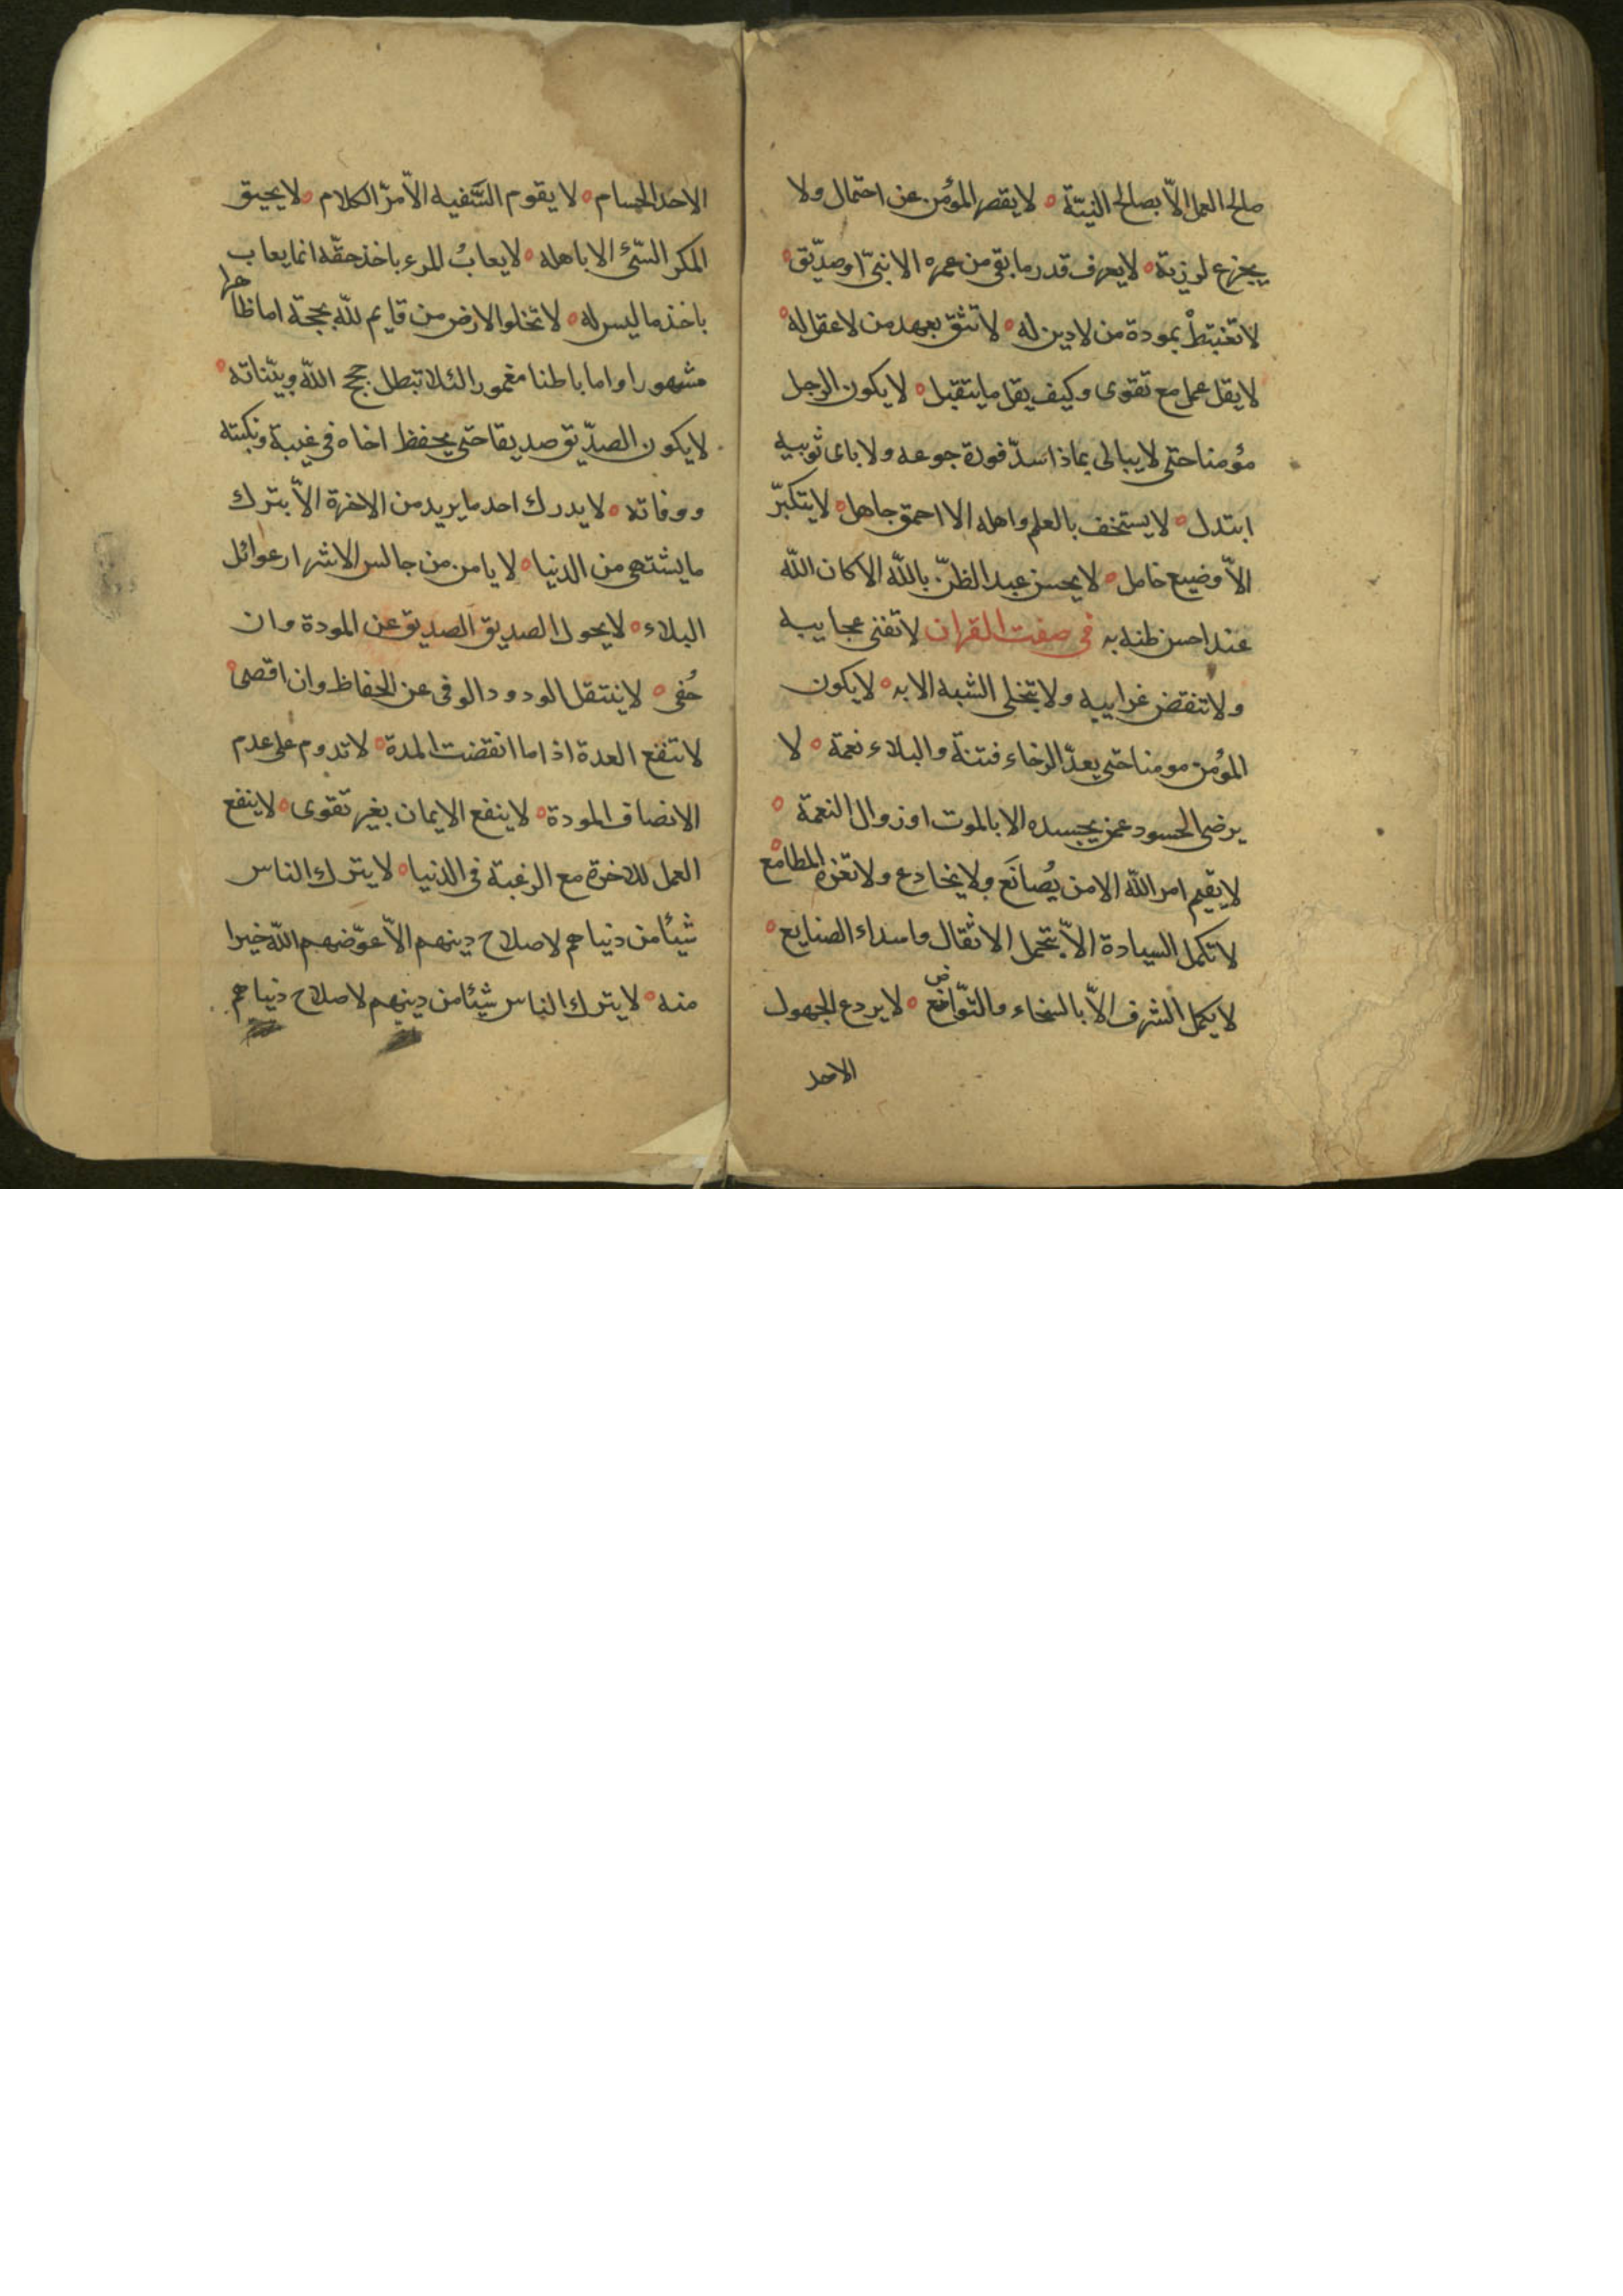 صالح العمل الاّ بصالح النيّة ه لا يقصر المؤمن عن احتمال ولا
يجزع لرزية ه لا يعرف قدر ما بقى من عمره الا نبىّ او صدّيق ه
لا تغتبطْ بمودة من لا دين له ه لا تثق بعهد من لا عقل له ه
لا يقل عمل مع تقوى وكيف يقل ما يتقبل ه لا يكون الرجل
مؤمنا حتى لا يبالى بماذا سدّ فورة جوعه ولا باى ثوبيه
ابتدل ه لا يستخف بالعلم واهله الا احمق جاهل ه لا يتكبرّ
الاّ وضيع خامل ه لا يحسن عبد الظنّ بالله الا كان الله
عند احسن ظنه به فى صفت القران لا تفنى عجايبه
ولا تنقضى غرايبه ولا تنجلى الشبه الا به ه لا يكون
المؤمن مومنا حتى يعدّ الرخاء فتنة والبلاء نعمة ه لا
يرضى الحسود عمن يحسده الا بالموت او زوال النعمة ه
لا يقيم امر الله الا من يُصانَع ولا يخادع ولا تغره المطامع ه
لا تكمل السيادة الاّ بتحمل الاثقال واسداء الصنايع ه
لا يكمل الشرف الاّ بالسخاء والتوّاضع ه لا يردع الجهول
الاحد
الاحد الحسام ه لا يقوم السَّفيه الاّ مرّ الكلام ه لا يحيق
المكر السّىئ الا باهله ه لا يعابُ المرء باخذ حقّه انما يعاب
باخذ ما ليس له ه لا تخلوا الارض من قايم لله بحجّة اما ظاهرا
مشهورا واما باطنا مغمورا لئلا تبطل حجج الله وبيّناته ه
لا يكون الصدّيق صديقا حتى يحفظ اخاه فى غيبة ونكبته
ووفاته ه لا يدرك احد ما يريد من الاخرة الاّ بترك
ما يشتهى من الدنيا ه لا يامن من جالس الاشرار عوائل
البلاء ه لا يحول الصديق الصديق عن المودة وان
جُفى ه لا ينتقل الودود الوفى عن الحفاظ وان اقصى ه
لا تنفع العدة اذا ما انقضت المدة ه لا تدوم على عدم
الانصاف المودة ه لا ينفع الايمان بغير تقوى ه لا ينفع
العمل للاخرة مع الرغبة فى الدنيا ه لا يترك الناس
شيئا من دنياهم لاصلاح دينهم الاّ عوّضهم الله خيرا
منه ه لا يترك الناس شيئا من دينهم لاصلاح دنياهم